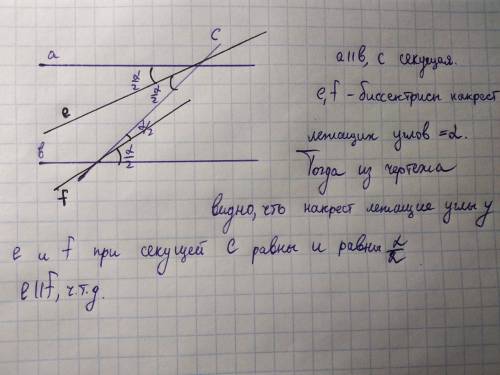 a
c
a||b, c секущая.
α/2
e
α/2
e, f - биссектрисы накрест
α/2
лежащих углов = α.
b
α/2
Тогда из чертежа
f
видно, что накрест лежащие углы у
e и f при секущей c равны и равны α/2.
e||f, ч.т.д.